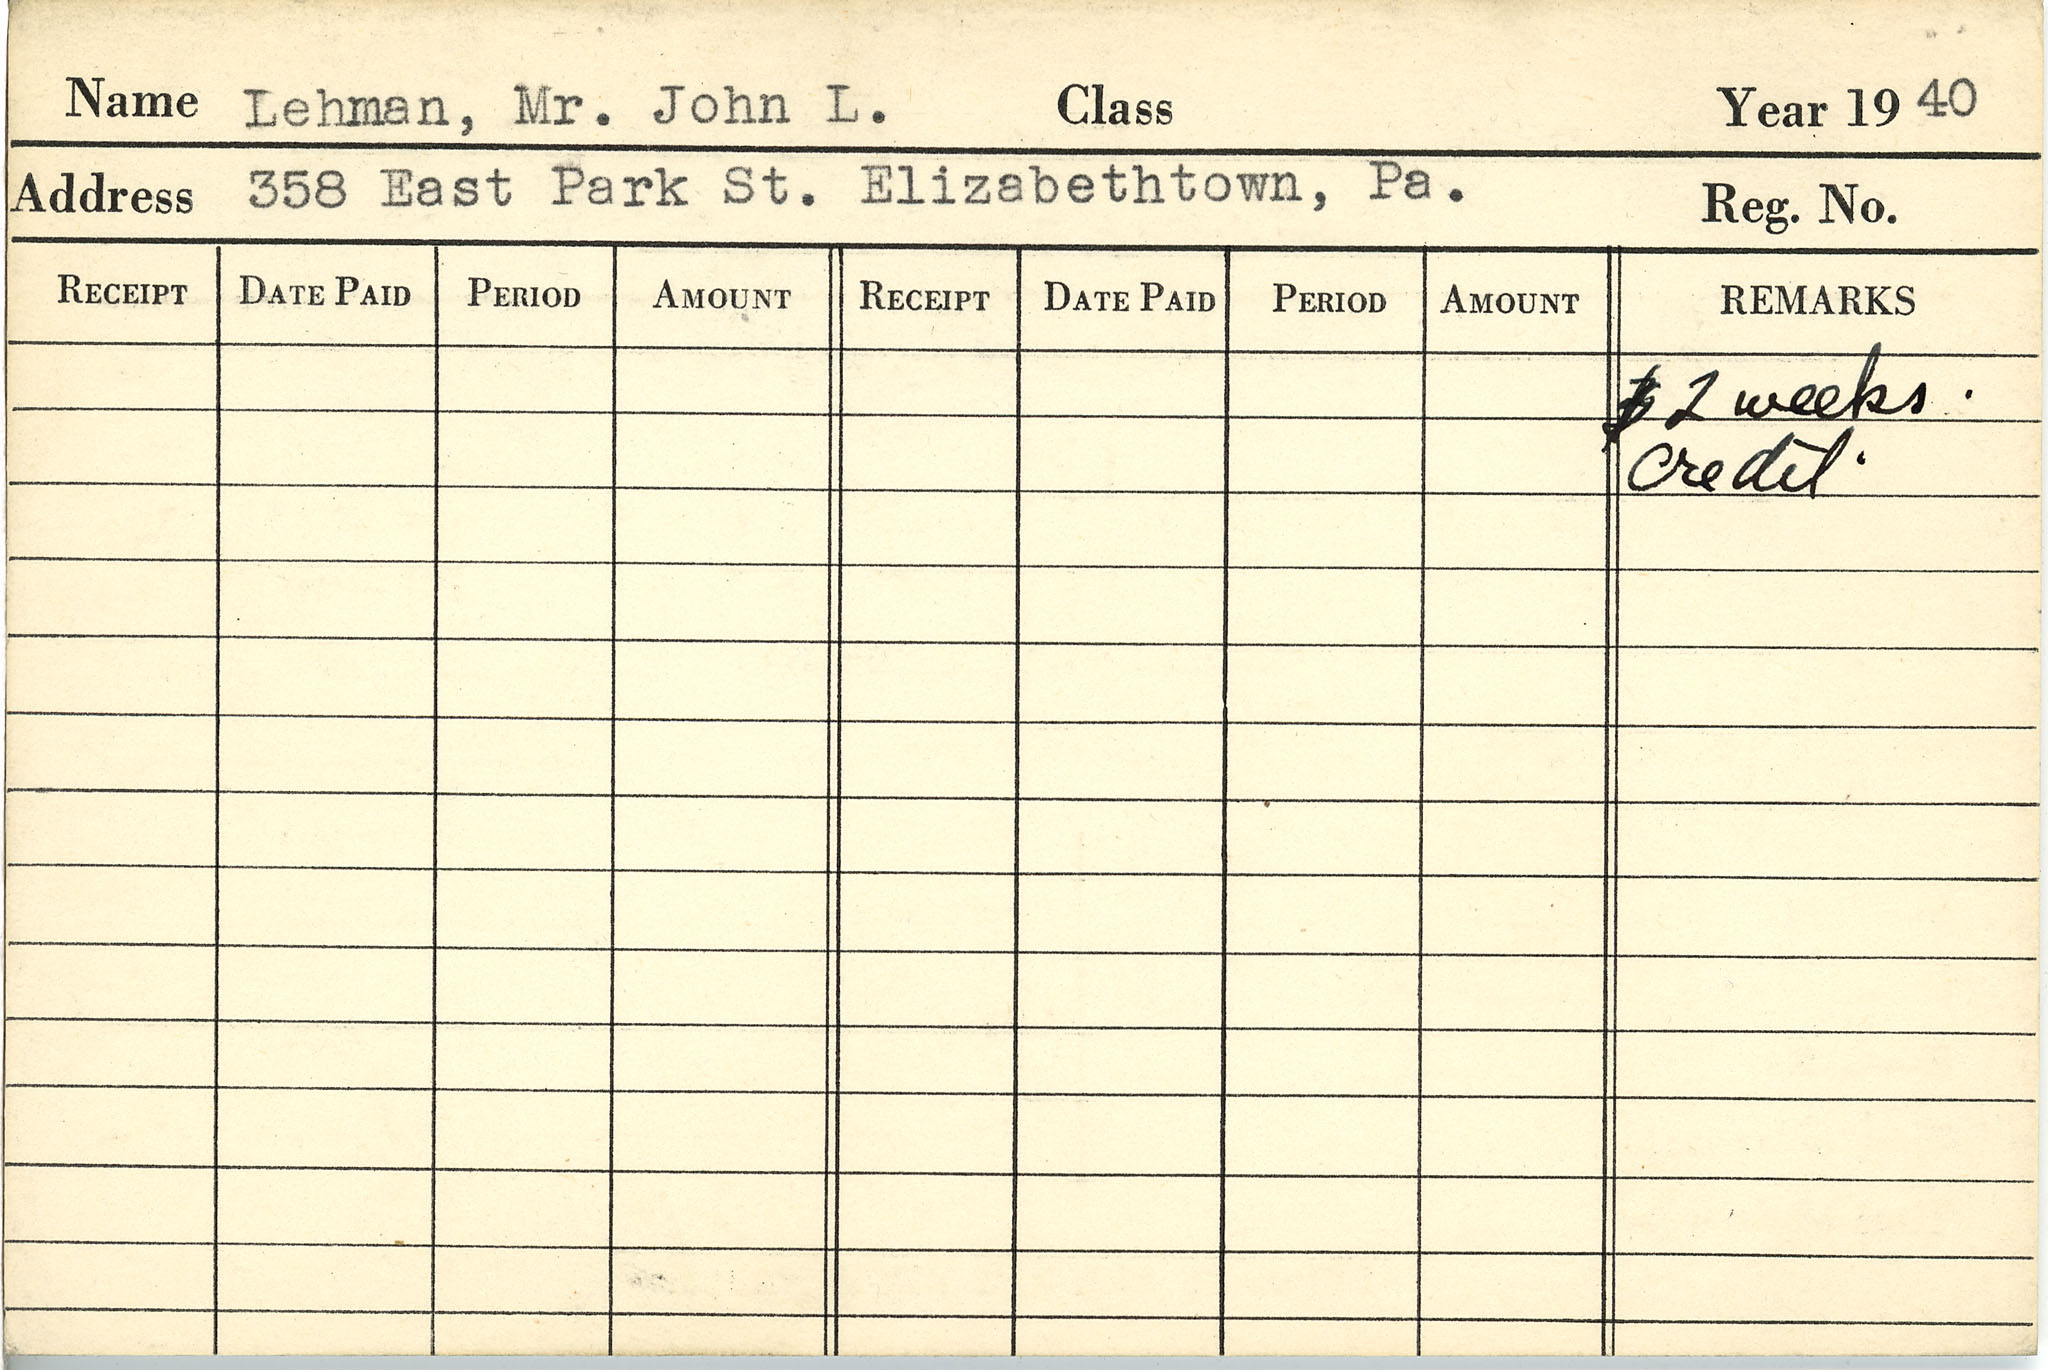 Name Lehman, Mr. John L. Class Year 1940
Address 358 East Park St. Elizabethtown, Pa. Reg. No.
RECEIPT DATE PAID PERIOD AMOUNT RECEIPT DATE PAID PERIOD AMOUNT REMARKS
2 weeks.
credit.